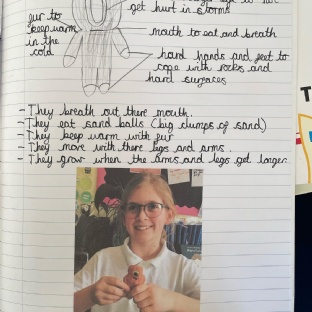 fur to
keep warm
in the
cold
get hurt in storms
mouth to eat and breath
hard hands and feet to
cope with rocks and
hard surfaces
- They breath out there mouth.
- They eat sand balls (big clumps of sand)
- They keep warm with fur
- They move with there legs and arms.
- They grow when the arms and legs get larger.
T